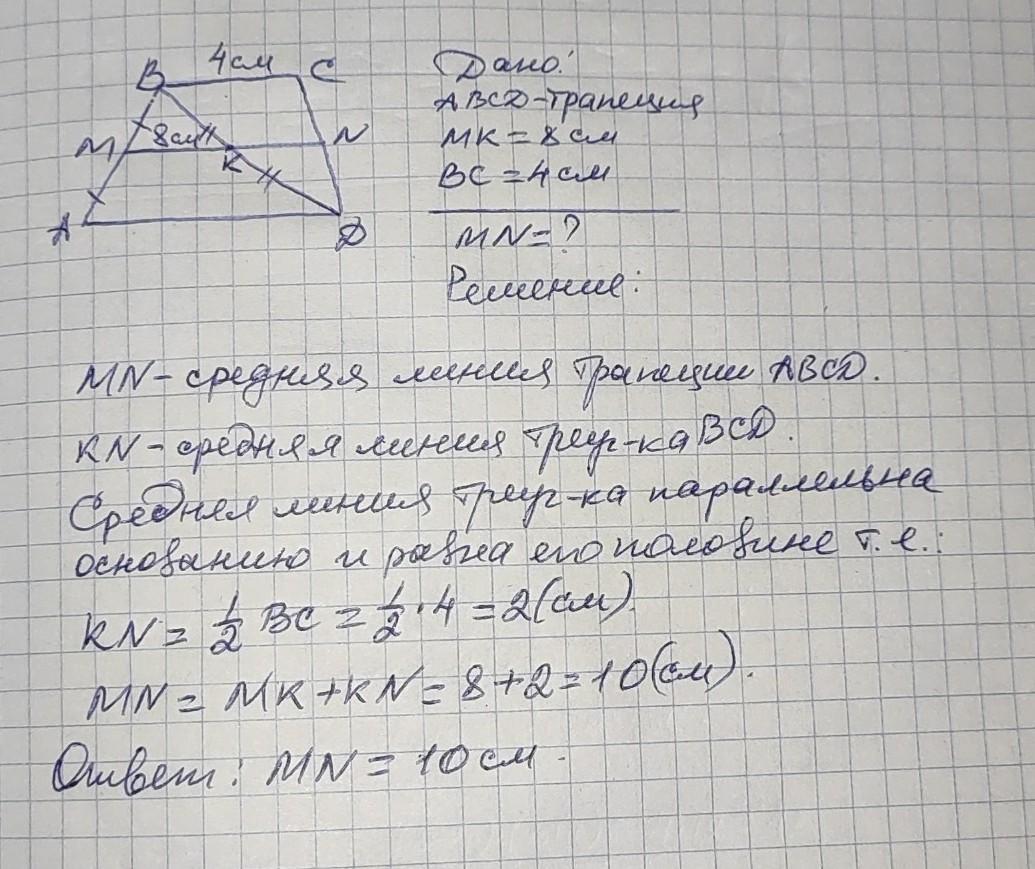 B 4см C
M 8см K N
A D
Дано:
ABCD-трапеция
MK = 8 см
BC = 4 см
MN = ?
Решение:
MN - средняя линия трапеции ABCD.
KN - средняя линия треуг-ка BCD.
Средняя линия треуг-ка параллельна
основанию и равна его половине т.е.:
KN = 1/2 BC = 1/2 · 4 = 2(см).
MN = MK + KN = 8 + 2 = 10(см).
Ответ: MN = 10 см.